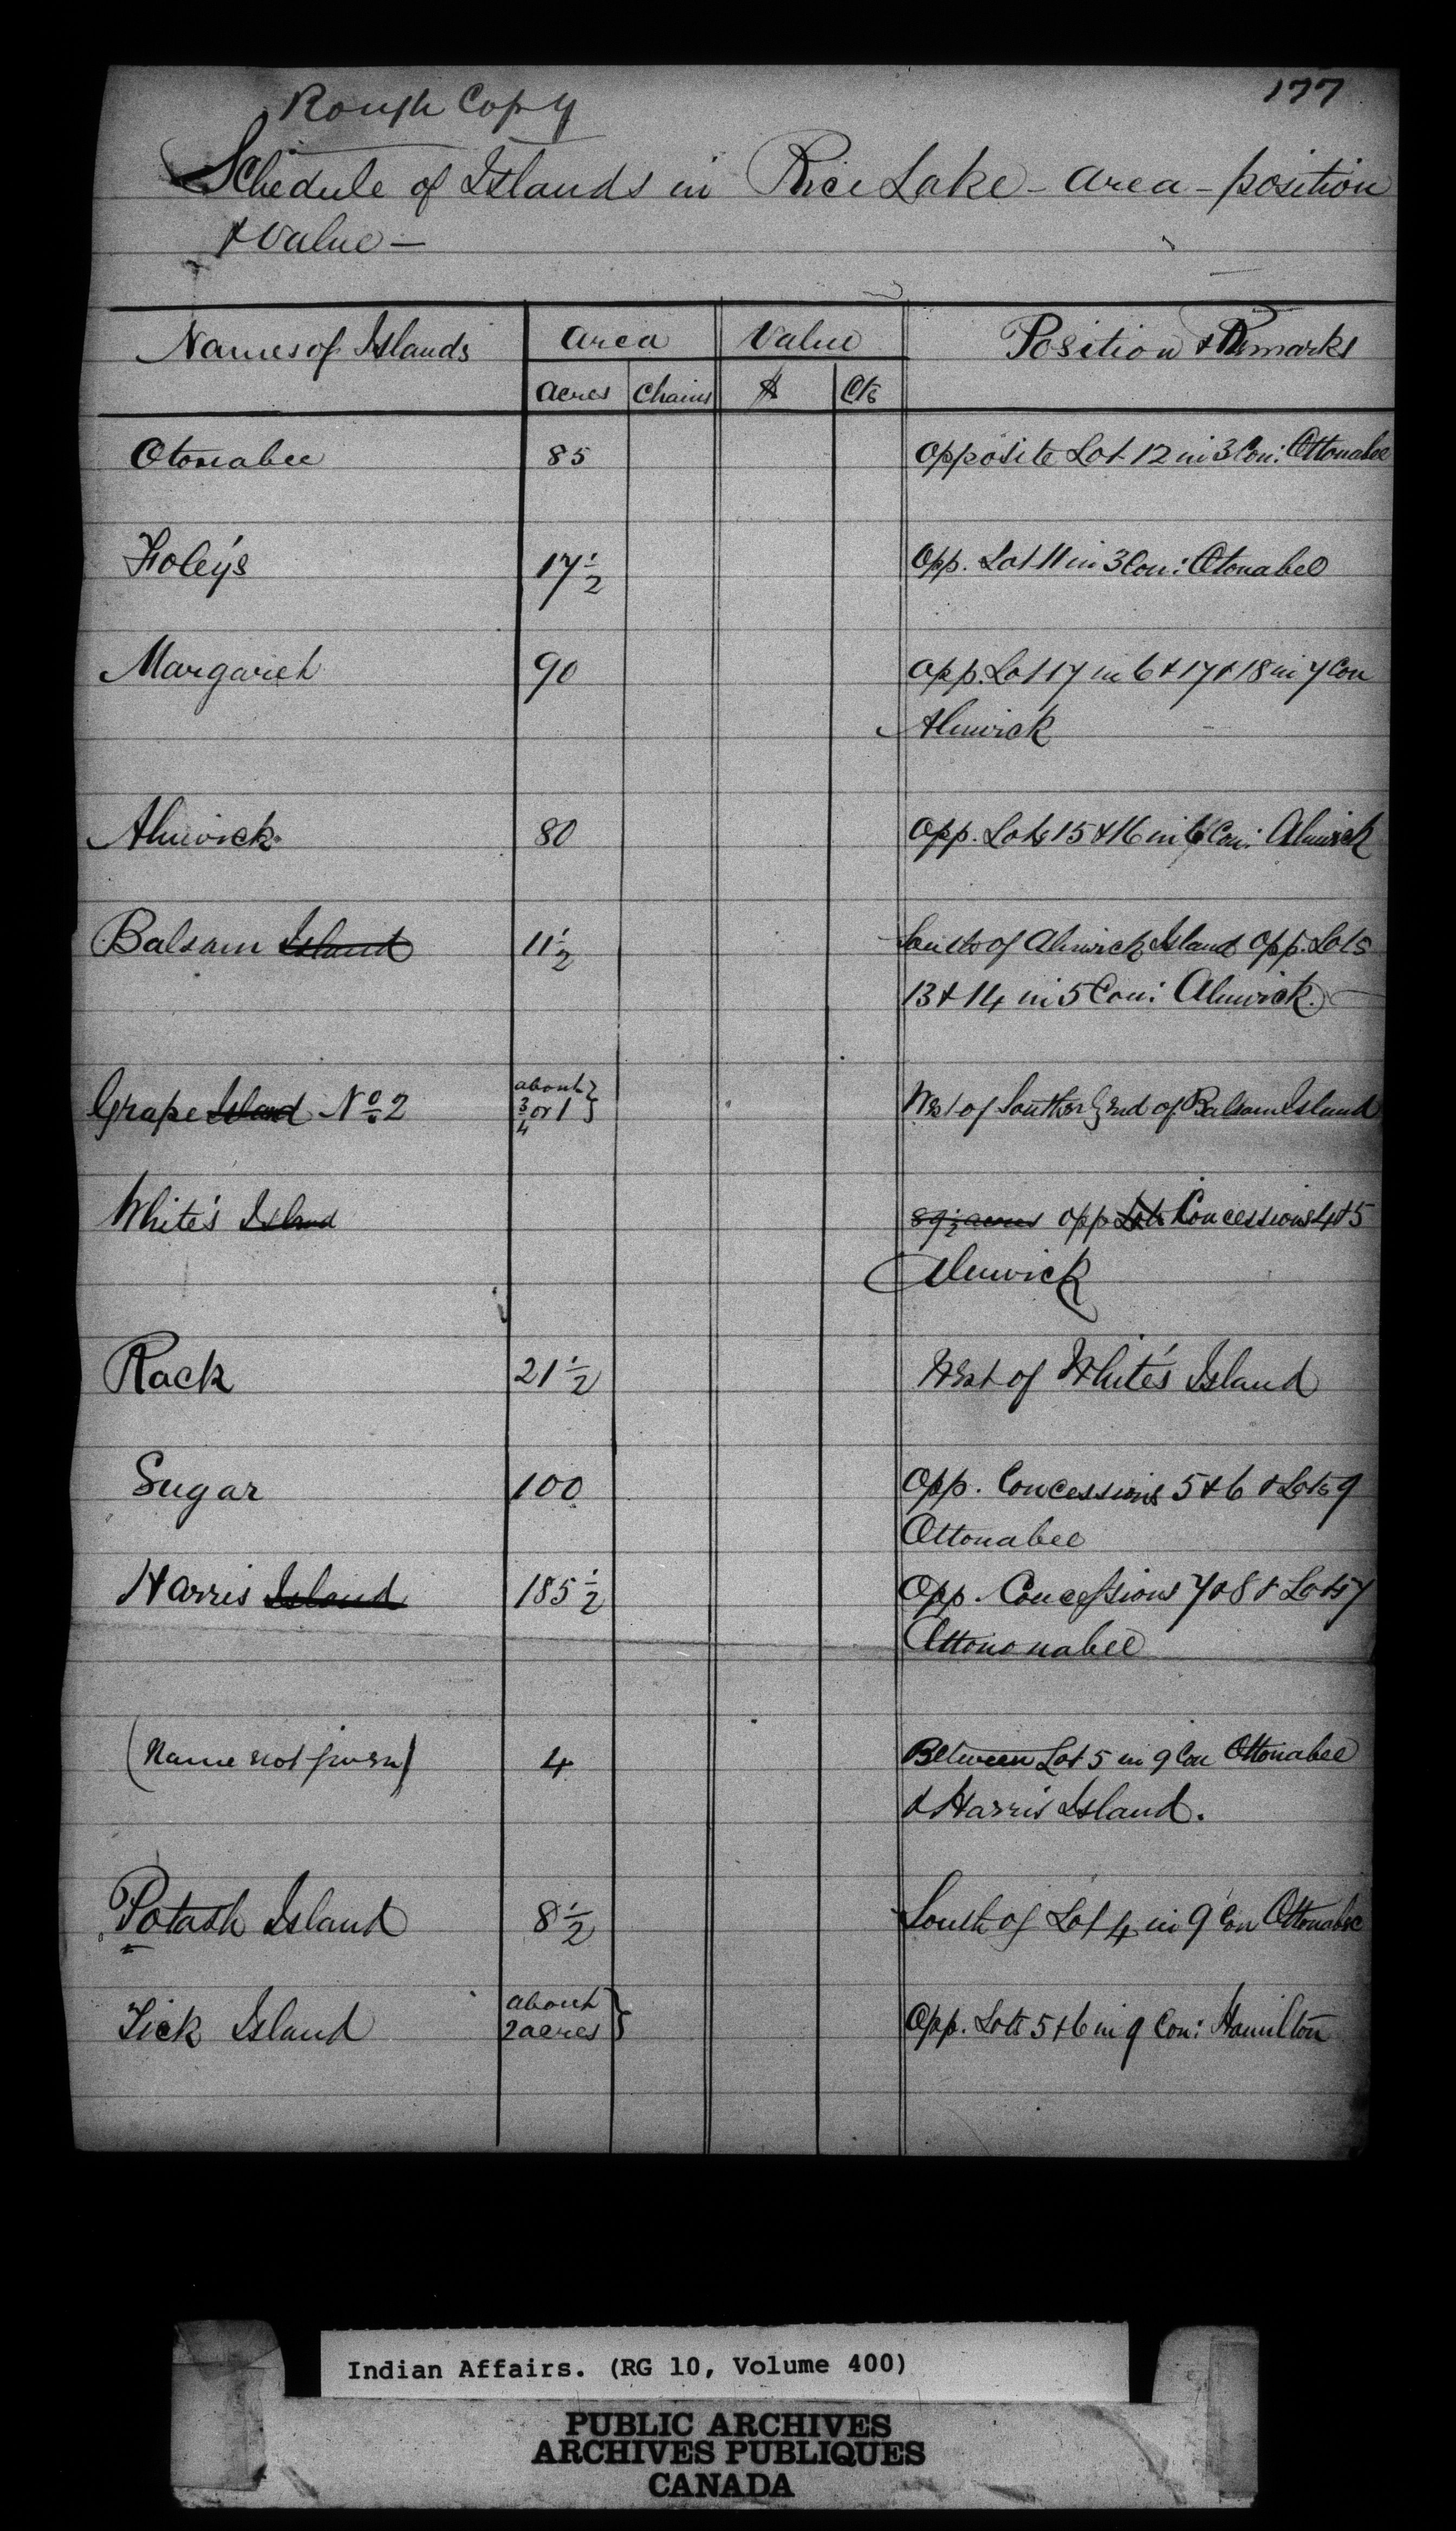 177
Rough Copy
Schedule of Islands in Rice Lake - area - position
& value -
Names of Islands | Area | Value | Position & Remarks
Acres | Chains | $ | Cts
Otonabee | 85 | Opposite Lot 12 in 3 Con: Ottonabee
Foley's | 17 1/2 | Opp. Lot 11 in 3 Con: Otonabee
Margaret | 90 | Opp. Lot 17 in 6 & 17 & 18 in 7 Con
Alnwick
Alnwick | 80 | Opp. Lots 15 & 16 in 6 Con: Alnwick
Balsam Island | 11 1/2 | South of Alnwick Island Opp. Lots
13 & 14 in 5 Con: Alnwick.
Grape Island No 2 | about 3/4 or 1 } | West of Southerly End of Balsam Island
White's Island | 89 1/2 acres opp Lots Concessions 4 & 5
Alnwick
Rack | 21 1/2 | West of White's Island
Sugar | 100 | Opp. Concessions 5 & 6 & Lots 9
Ottonabee
Harris Island | 185 1/2 | Opp. Concessions 7 & 8 & Lots 7
Ottononabee
(Name not given) | 4 | Between Lot 5 in 9 Con Ottonabee
& Harris Island.
Potash Island | 8 1/2 | South of Lot 4 in 9 Con Ottonabee
Tick Island | about 2 acres } | Opp. Lots 5 & 6 in 9 Con: Hamilton
Indian Affairs. (RG 10, Volume 400)
PUBLIC ARCHIVES
ARCHIVES PUBLIQUES
CANADA